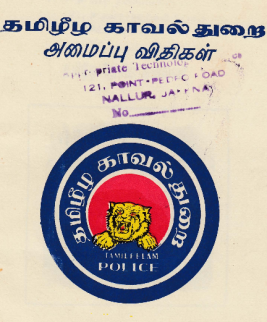 தமிழீழ காவல் துறை
அமைப்பு விதிகள்
Appropriate Technology
121, POINT-PEDRO ROAD
NALLUR, JAFFNA
No
தமிழீழ காவல் துறை
TAMILEELAM
POLICE